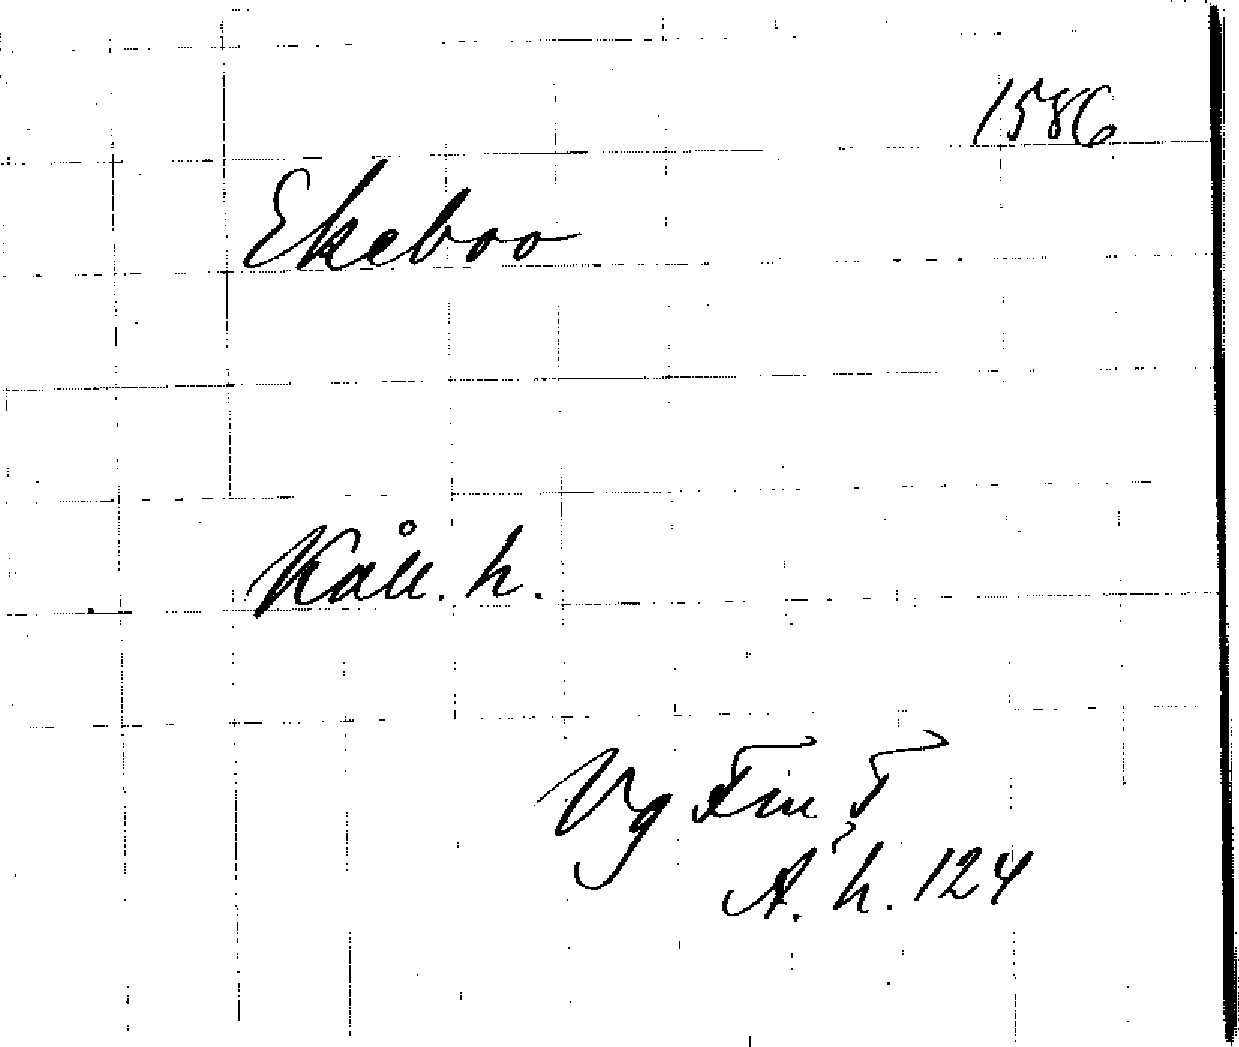 1586
Ekeboo
Kåll. h.
Vg Fm T
A. h. 124